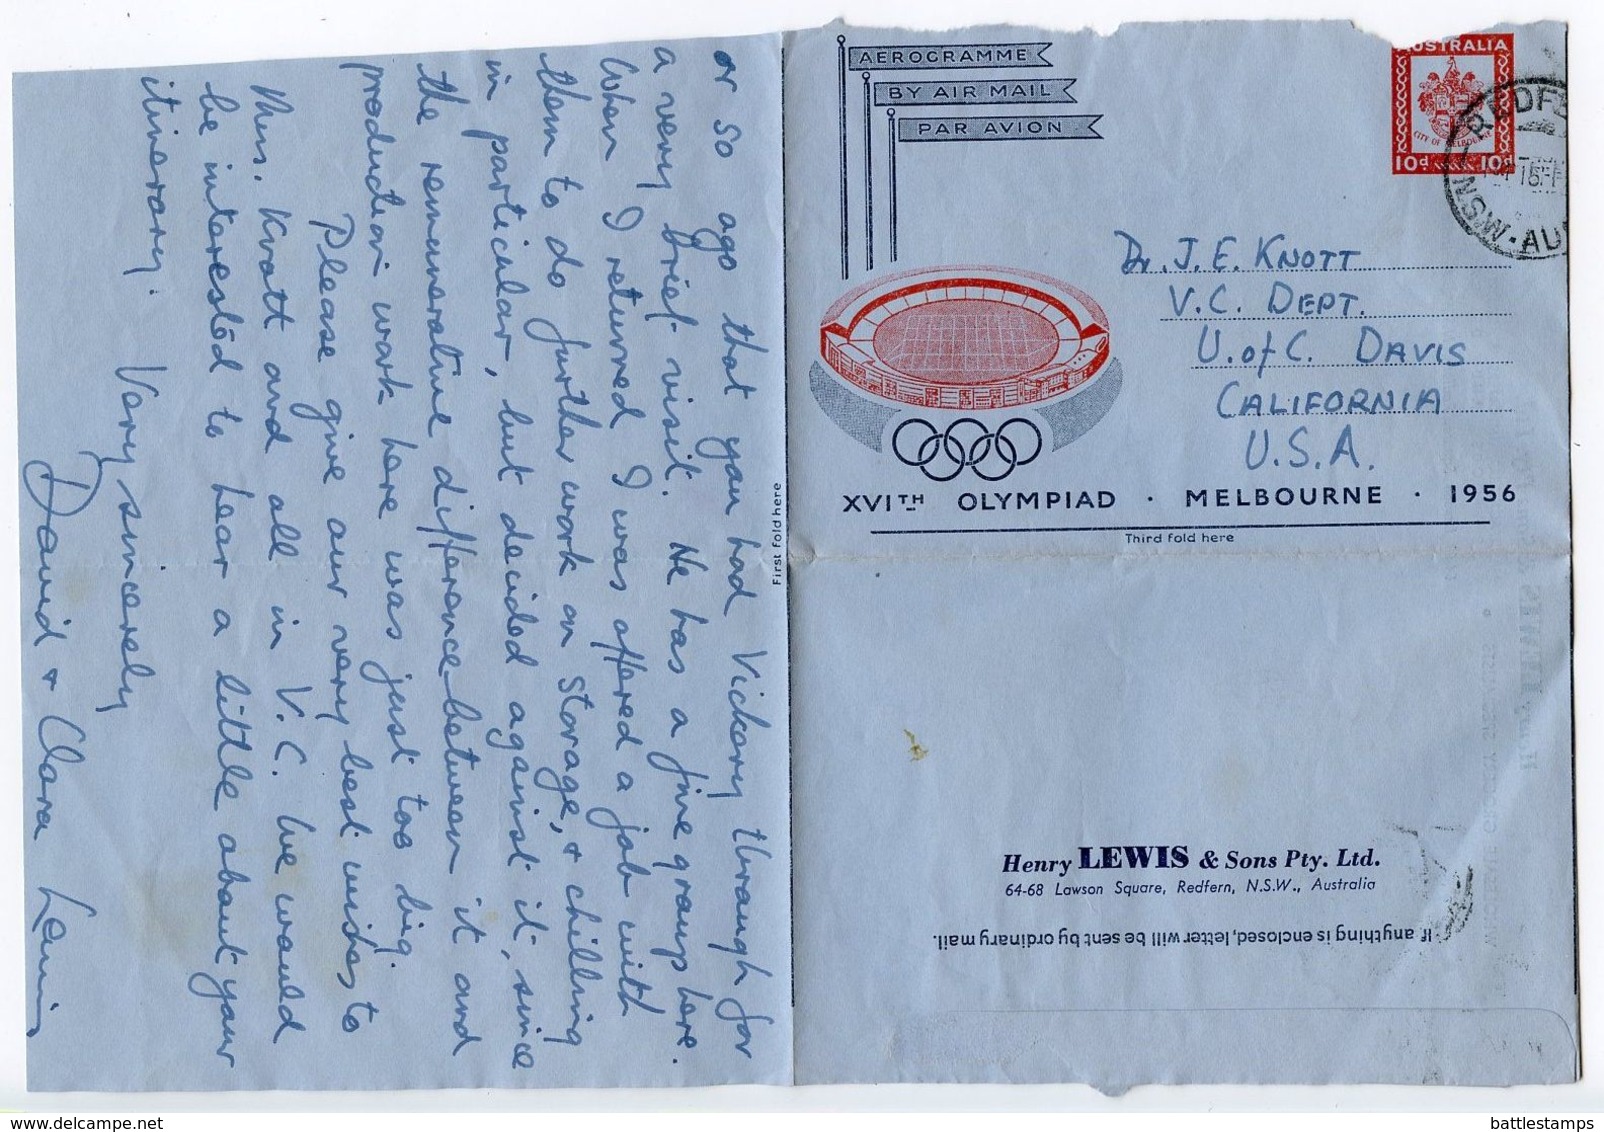 AEROGRAMME
BY AIR MAIL
PAR AVION
AUSTRALIA
CITY OF MELBOURNE
10d 10d
NSW-AU
Dr. J. E. KNOTT
V.C. DEPT.
U. of C. DAVIS
CALIFORNIA
U.S.A.
XVITH OLYMPIAD · MELBOURNE · 1956
Third fold here
First fold here
Henry LEWIS & Sons Pty. Ltd.
64-68 Lawson Square, Redfern, N.S.W., Australia
If anything is enclosed, letter will be sent by ordinary mail.
or so ago that you had Vickery through for
a very brief visit. He has a fine group here.
When I returned I was offered a job with
them to do further work on storage, & chilling
in particular, but decided against it, since
the remuneration difference between it and
production work here was just too big.
Please give our very best wishes to
Mrs. Knott and all in V.C. We would
be interested to hear a little about your
itinerary.
Very sincerely
David & Clara Lewis
battlestamps